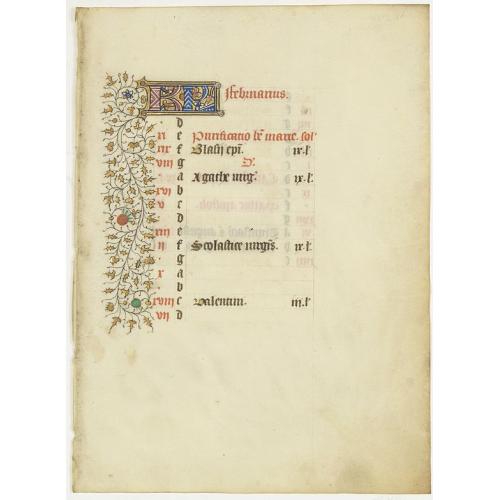 KL Februarius.
d
xi e Purificatio bē marie. sol'
xix f Blasij epī. ix.l'
viij g
a Agathe uirg. ix.l'
xvi b
v c
d
xiij e
ij f Scolastice uirgīs. ix.l'
g
x a
b
xviij c Valentini. iij.l'
vij d